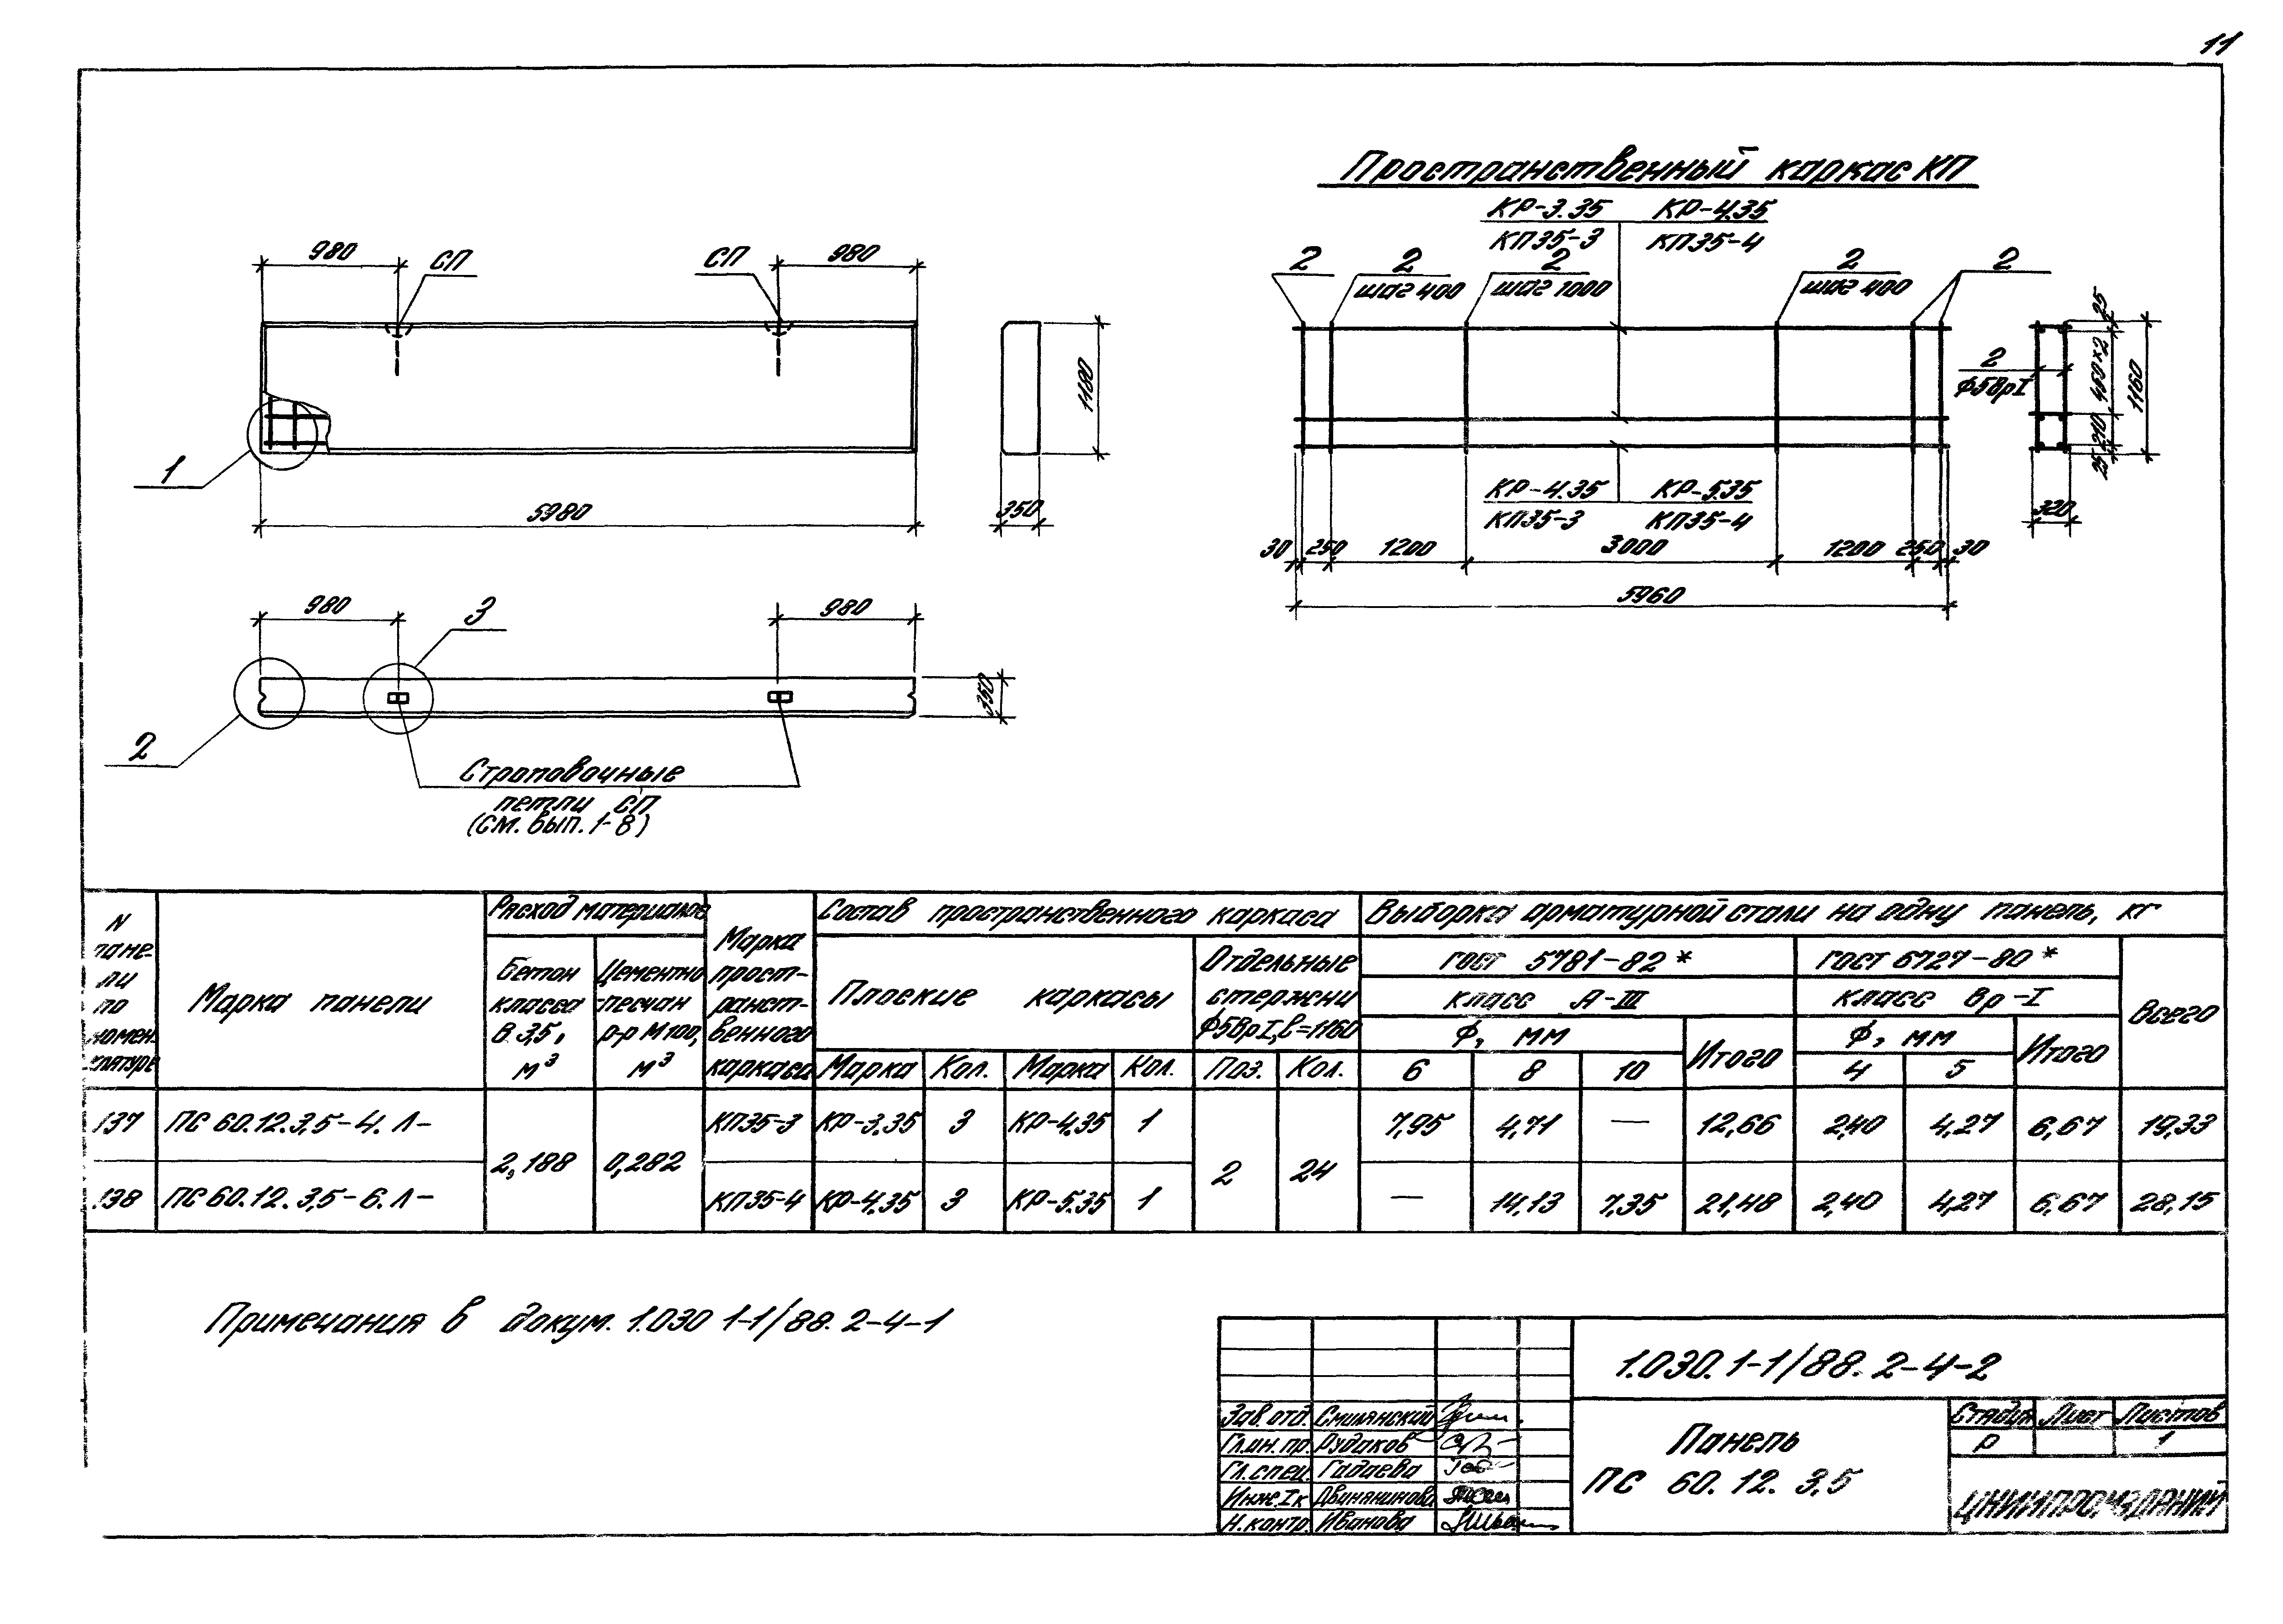 11
Пространственный каркас КП
КР-3.35 КР-4.35
КП35-3 КП35-4
980 СП СП 980
2 2 2 2 2
шаг 400 шаг 1000 шаг 400
25
2
ф5ВрI
450×2
1160
210
25
320
1180
1
5980
350
КР-4.35 КР-5.35
КП35-3 КП35-4
30 250 1200 3000 1200 250 30
5960
980 3 980
350
2
Строповочные
петли СП
(см. вып. 1-8)
N
пане-
ли
по
номен-
клатуре
Марка панели
Расход материалов
Бетон
класса
В 3,5,
м³
Цементно
песчан
р-р М100,
м³
Марка
прост-
ранст-
венного
каркаса
Состав пространственного каркаса
Плоские каркасы
Отдельные
стержни
ф5ВрI, l=1160
Марка Кол. Марка Кол. Поз. Кол.
Выборка арматурной стали на одну панель, кг
ГОСТ 5781-82* ГОСТ 6727-80*
класс А-III класс Вр-I
Всего
ф, мм Итого ф, мм Итого
6 8 10 4 5
137 ПС 60.12.3,5-4. Л- КП35-3 КР-3.35 3 КР-4.35 1 7,95 4,71 — 12,66 2,40 4,27 6,67 19,33
2,188 0,282 2 24
138 ПС 60.12.3,5-6. Л- КП35-4 КР-4.35 3 КР-5.35 1 — 14,13 7,35 21,48 2,40 4,27 6,67 28,15
Примечания в докум. 1.030 1-1/88. 2-4-1
1.030.1-1/88. 2-4-2
Зав. отд. Смилянский
Гл.ин. пр. Рудаков
Гл. спец. Гадаева
Инж. Iк Двинянинова
Н. контр. Иванова
Панель
ПС 60. 12. 3,5
Стадия Лист Листов
Р 1
ЦНИИПРОМЗДАНИЙ